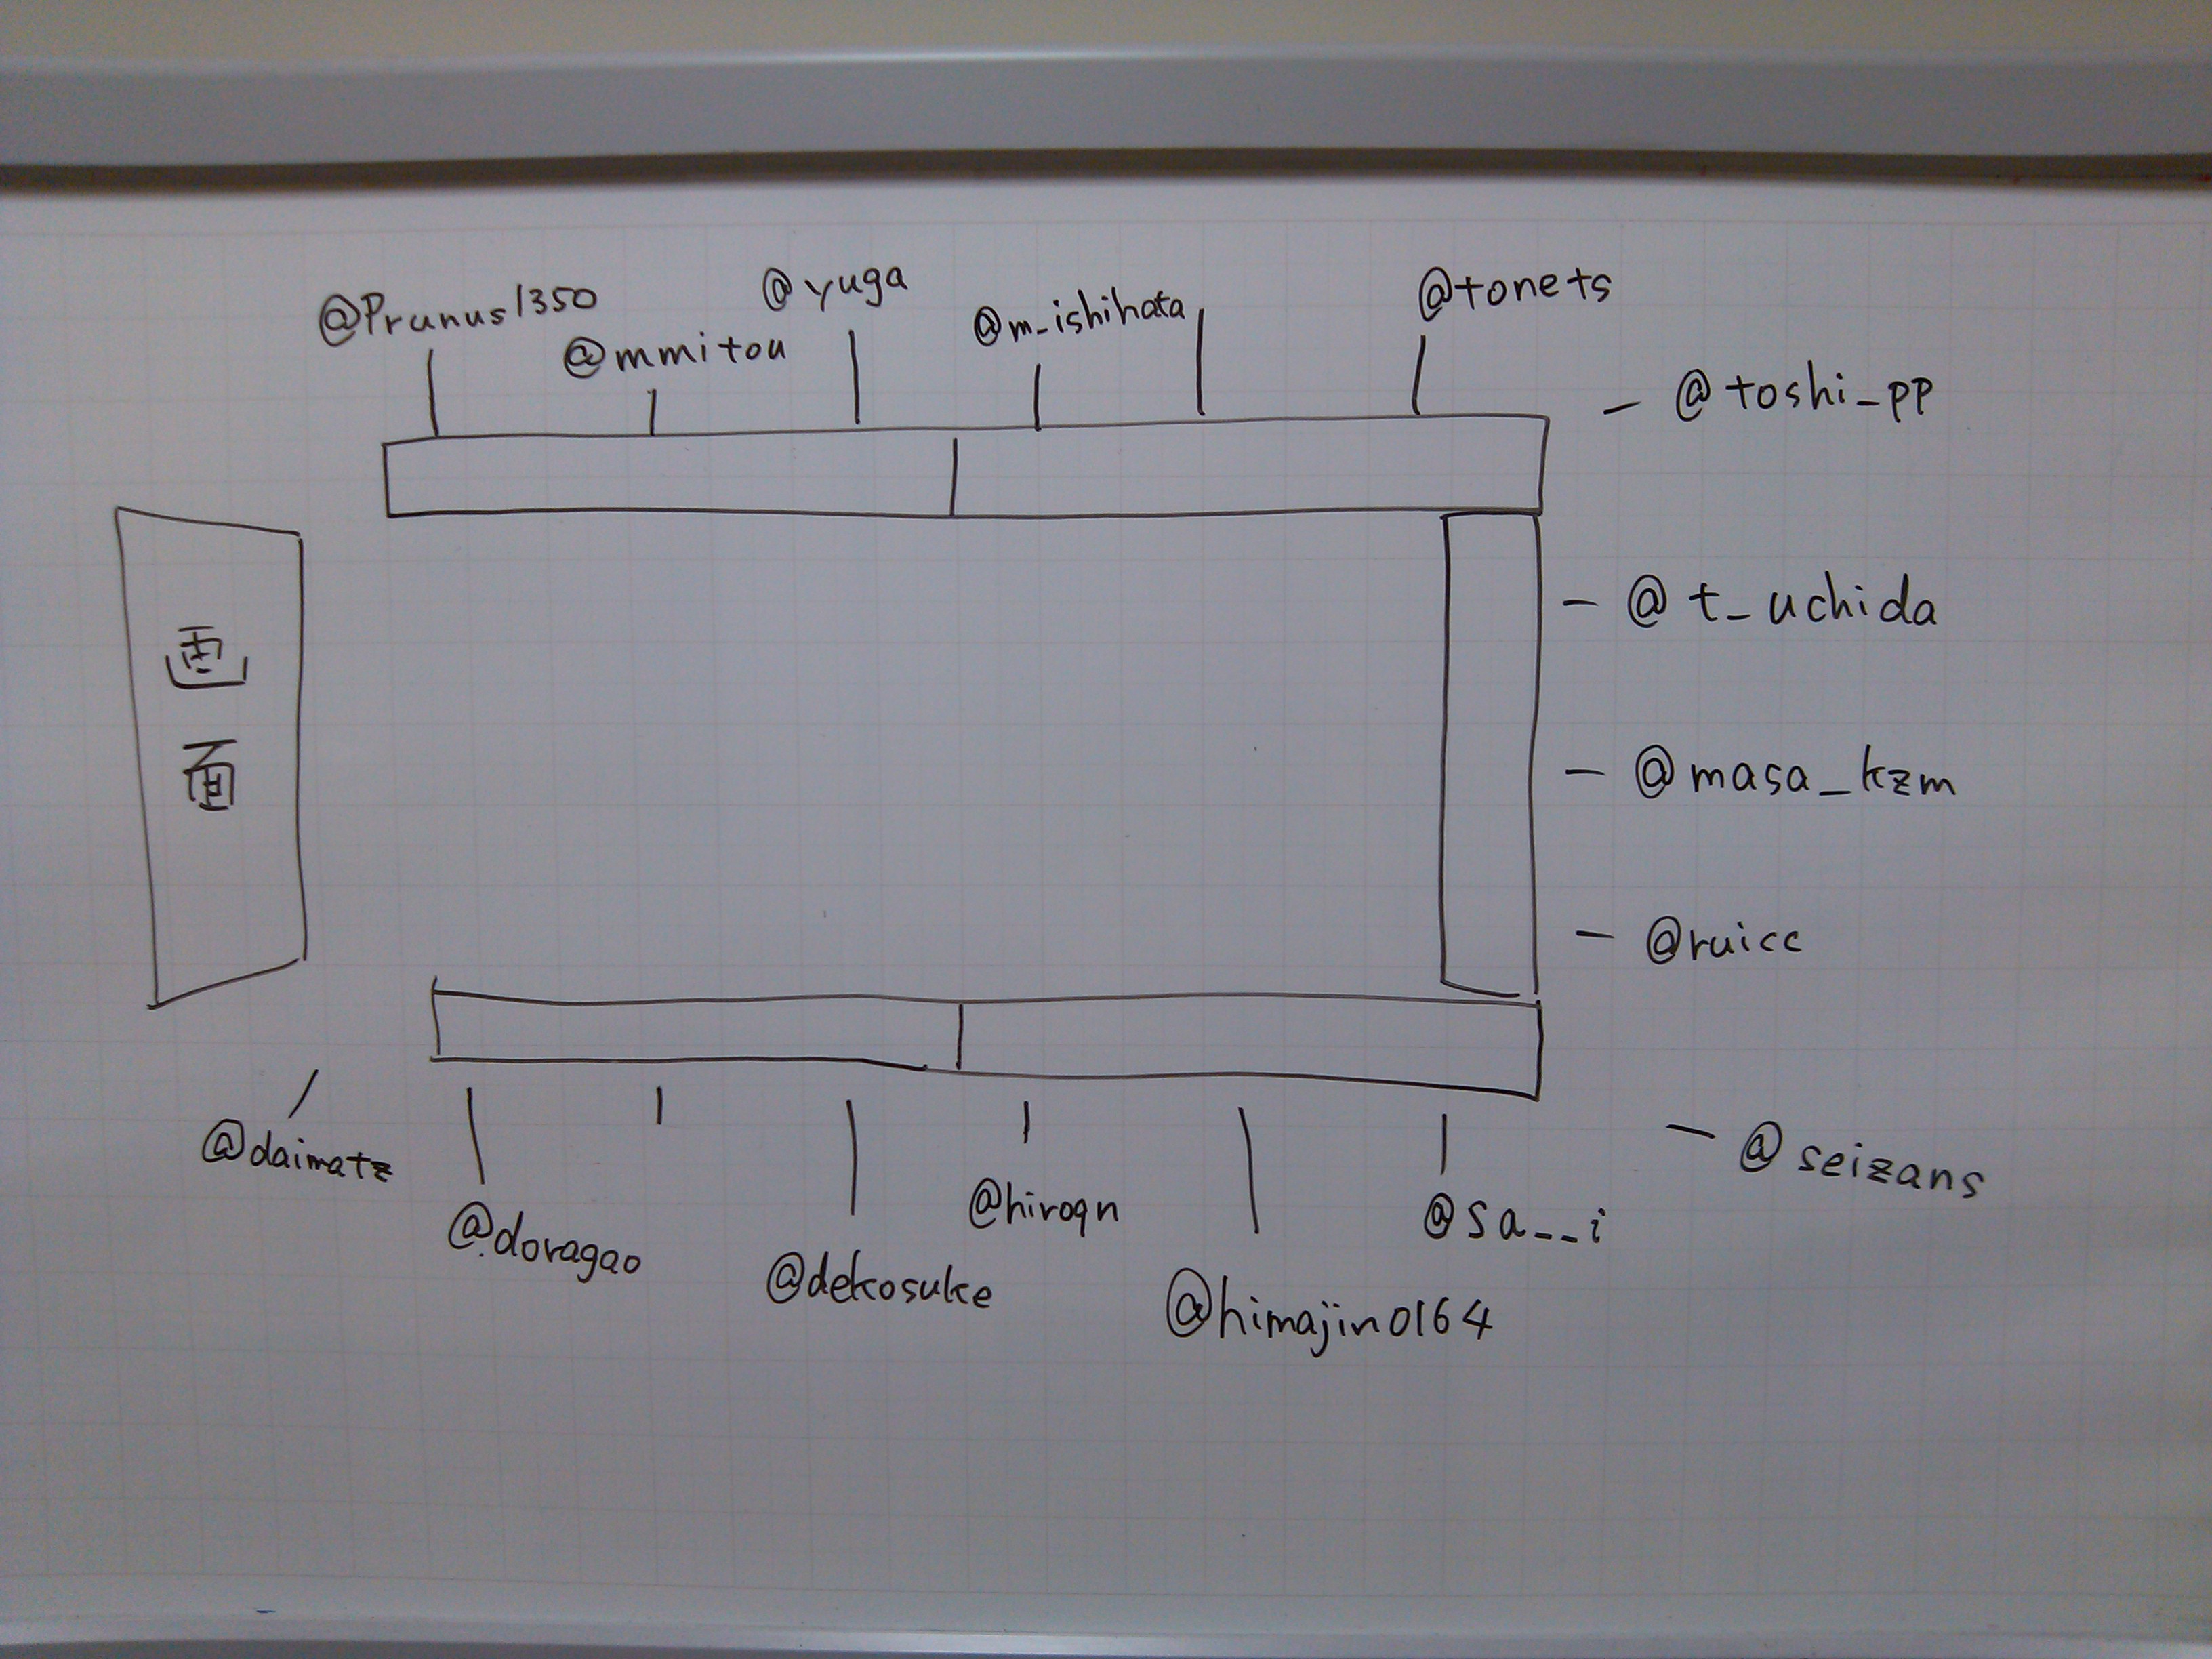 @Prunus1350
@mmitou
@yuga
@m_ishihata
@tonets
@toshi_pp
画面
@t_uchida
@masa_kzm
@ruicc
@daimatz
@doragao
@dekosuke
@hiroqn
@himajin0164
@sa__i
@seizans